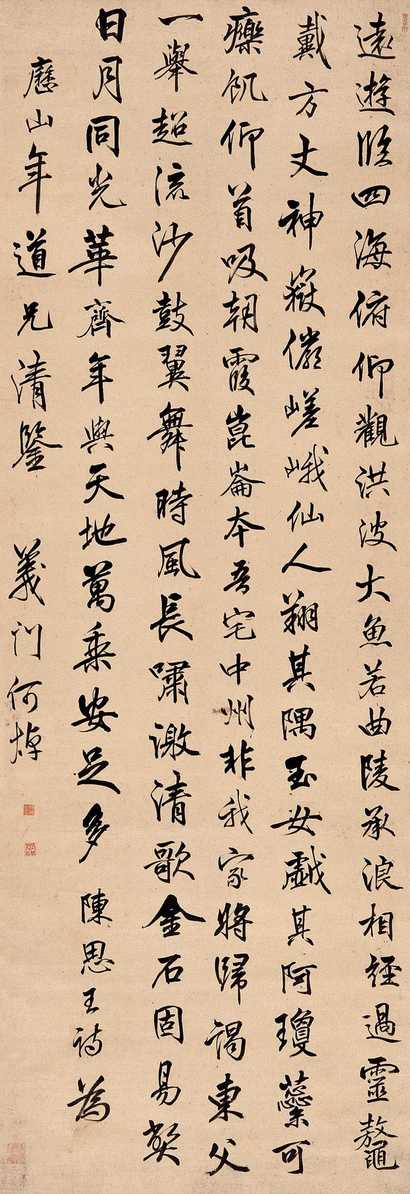 遠遊臨四海俯仰觀洪波大魚若曲陵承浪相經過靈鼇
戴方丈神嶽儼嵯峨仙人翔其隅玉女戲其阿瓊蘂可
療飢仰首吸朝霞崑崙本吾宅中州非我家將歸謁東父
一舉超流沙鼓翼舞時風長嘯激清歌金石固易弊
日月同光華齊年與天地萬乘安足多 陳思王詩為
歷山年道兄清鑒 義門何焯